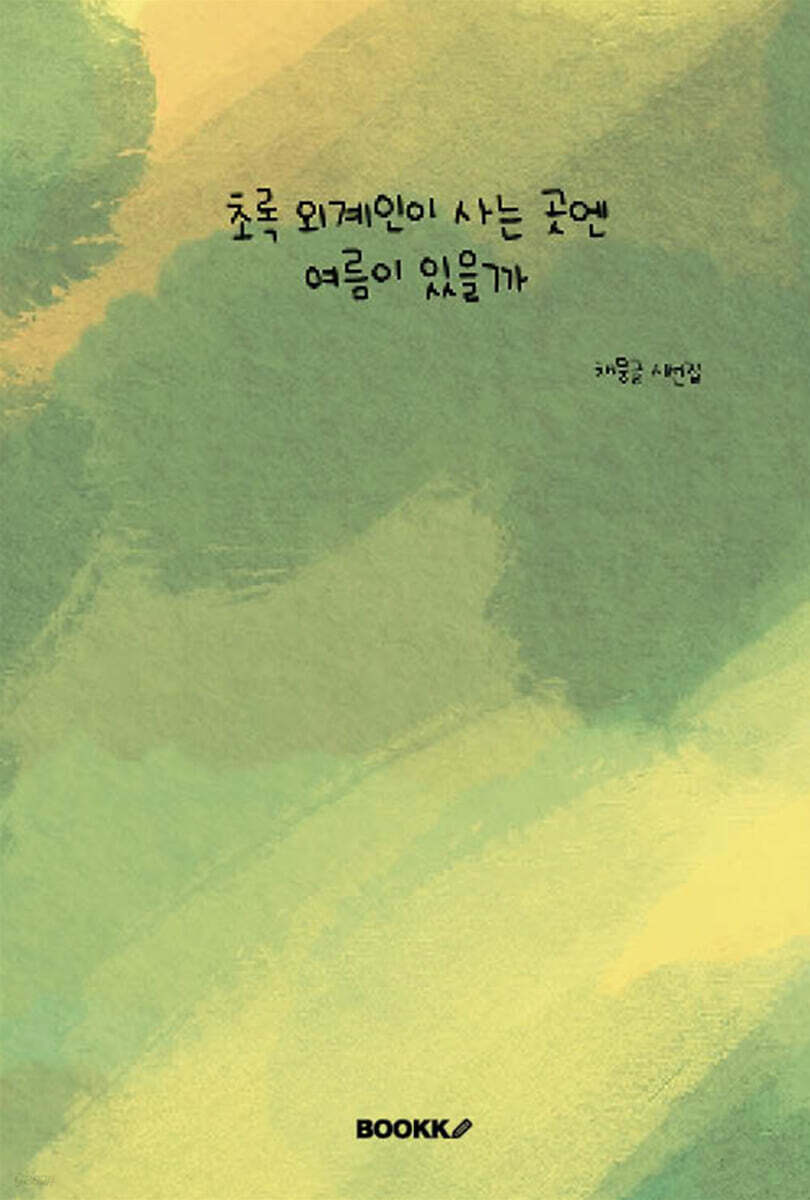 초록 외계인이 사는 곳엔
여름이 있을까
채뭉글 시번집
BOOKK